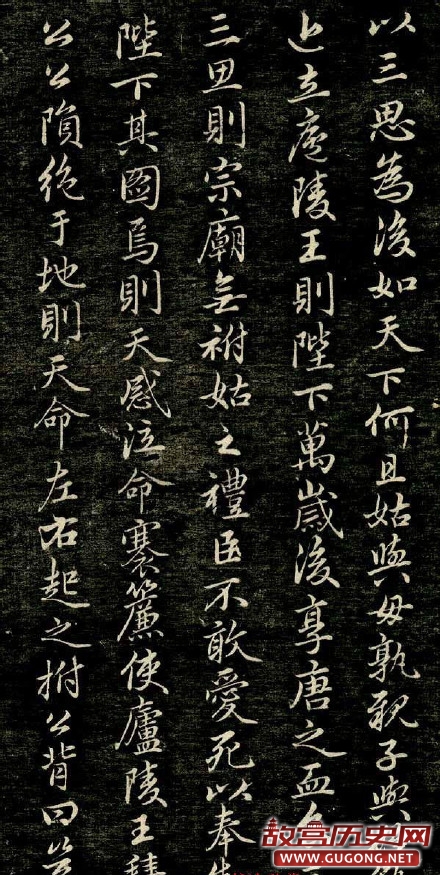 以三思為後如天下何且姑與母孰親子與
立廬陵王則陛下萬歲後享唐之血
三思則宗廟無祔姑之禮臣不敢愛死以奉
陛下其圖焉則天感泣命褰簾使廬陵王拜
公公隕絕于地則天命左右起之拊公背曰
故宫历史网
WWW.GUGONG.NET